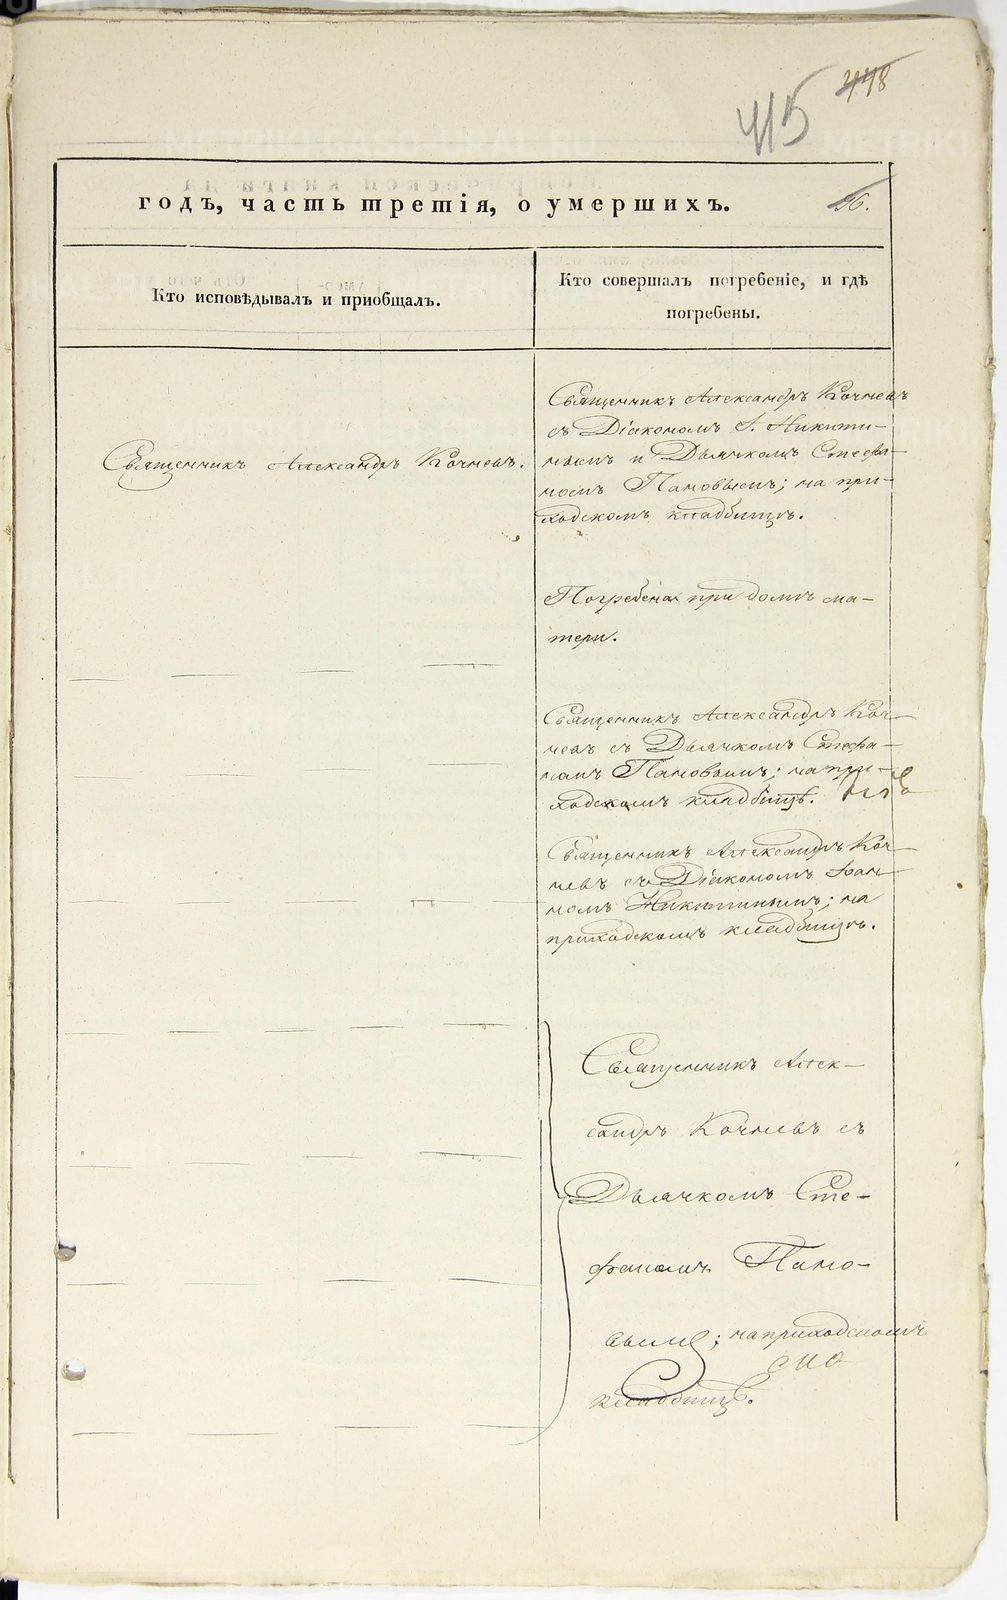 448
415
годъ, часть третія, о умершихъ.
56.
Кто исповѣдывалъ и пріобщалъ.
Кто совершалъ погребеніе, и гдѣ
погребены.
Священникъ Александръ Кочневъ.
Священникъ Александръ Кочневъ
съ Діакономъ І. Никити-
нымъ и Дьячкомъ Стефа-
номъ Пановымъ; на при-
ходскомъ кладбищѣ.
Погребена при домѣ ма-
тери.
Священникъ Александръ Коч-
невъ съ Дьячкомъ Стефа-
номъ Пановымъ; на при-
ходскомъ кладбищѣ.
Священникъ Александръ Коч-
невъ съ Діакономъ Іоан-
номъ Никитинымъ; на
приходскомъ кладбищѣ.
Священникъ Алек-
сандръ Кочневъ съ
Дьячкомъ Сте-
фаномъ Пано-
вымъ; на приходскомъ
кладбищѣ.
METRIKI.GASO-URAL.RU